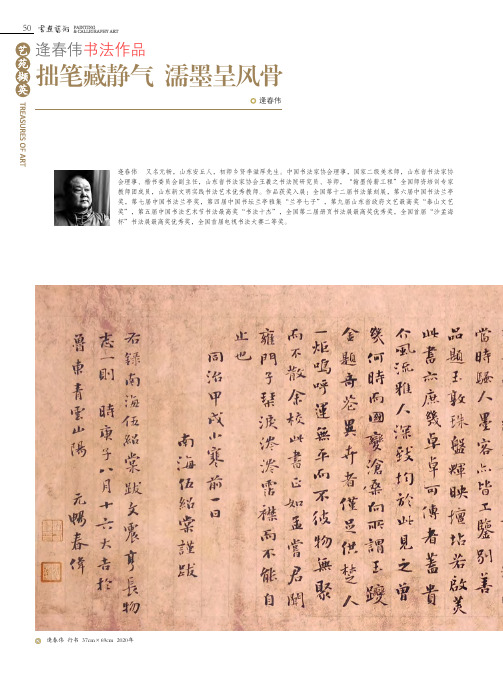 50 書畫藝術 PAINTING
& CALLIGRAPHY ART
艺苑撷英
TREASURES OF ART
逄春伟书法作品
拙笔藏静气 濡墨呈风骨
逄春伟
逄春伟 又名元畅，山东安丘人，初师乡贤李漱厚先生。中国书法家协会理事，国家二级美术师，山东省书法家协
会理事、楷书委员会副主任，山东省书法家协会王羲之书法院研究员、导师，“翰墨传薪工程”全国师资培训专家
教师团成员，山东新文明实践书法艺术优秀教师。作品获奖入展：全国第十二届书法篆刻展，第六届中国书法兰亭
奖，第七届中国书法兰亭奖，第四届中国书坛兰亭雅集“兰亭七子”，第九届山东省政府文艺最高奖“泰山文艺
奖”，第五届中国书法艺术节书法最高奖“书法十杰”，全国第二届册页书法展最高奖优秀奖，全国首届“沙孟海
杯”书法展最高奖优秀奖，全国首届电视书法大赛二等奖。
當時騷人墨客亦皆工鑒别善
品題玉敦珠盤輝映壇坫若啟美
此書亦庶幾卓卓可傳者蓋貴
介風流雅人深致均於此見之曾
幾何時而國變滄桑向所謂玉躞
金題奇花異卉者僅足供楚人
一炬嗚呼運無平而不彼物無聚
而不散余校此書正如孟嘗君聞
雍門子琹淚涔涔霑襟而不能自
止也
同治甲戌小寒前一日
南海伍紹棠謹跋
右録南海伍紹棠跋文震亨長物
志一則 時庚子八月十六大吉於
魯東青雲山陽 元暢春偉
逄春伟 行书 37cm×69cm 2020年